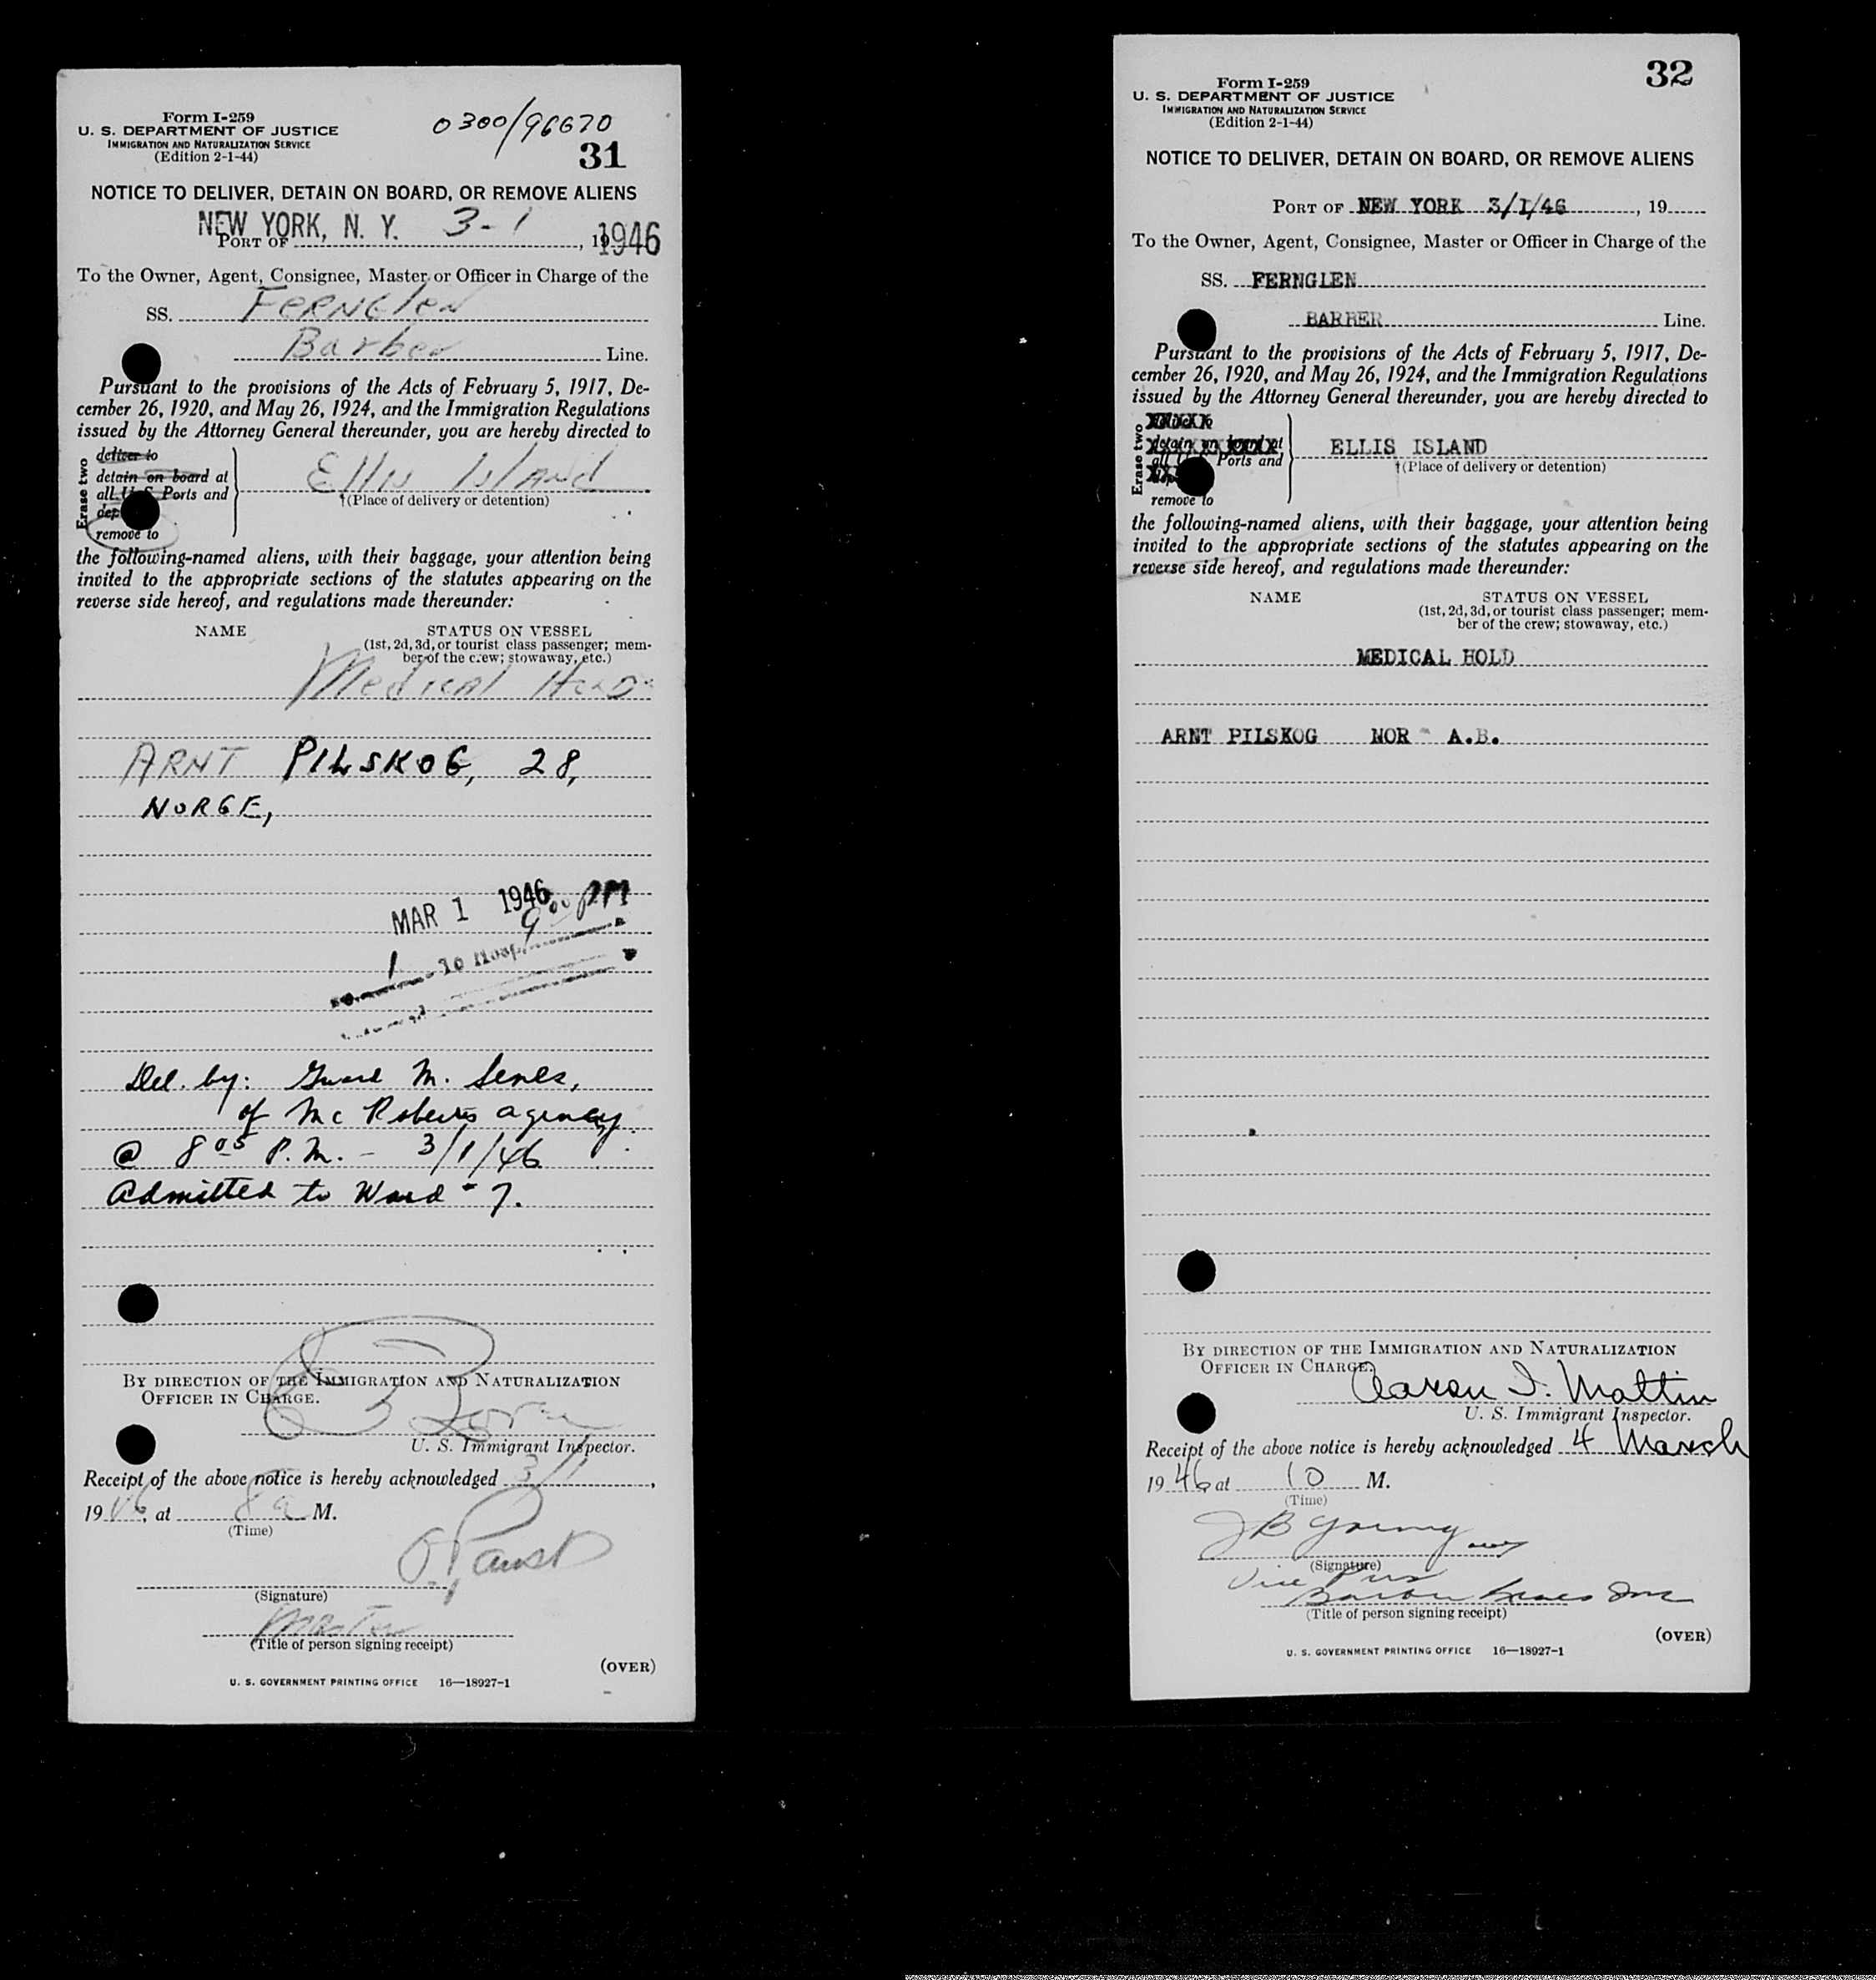 Form I-259
U. S. DEPARTMENT OF JUSTICE
IMMIGRATION AND NATURALIZATION SERVICE
(Edition 2-1-44)
0300/96670
31
NOTICE TO DELIVER, DETAIN ON BOARD, OR REMOVE ALIENS
NEW YORK, N. Y. 3-1
PORT OF , 19 1946
To the Owner, Agent, Consignee, Master or Officer in Charge of the
SS. FERNGlen
Barber Line.
Pursuant to the provisions of the Acts of February 5, 1917, De-
cember 26, 1920, and May 26, 1924, and the Immigration Regulations
issued by the Attorney General thereunder, you are hereby directed to
Erase two
deliver to
detain on board at
all U. S. Ports and
dep
remove to
Ellis Island
†(Place of delivery or detention)
the following-named aliens, with their baggage, your attention being
invited to the appropriate sections of the statutes appearing on the
reverse side hereof, and regulations made thereunder:
NAME STATUS ON VESSEL
(1st, 2d, 3d, or tourist class passenger; mem-
ber of the crew; stowaway, etc.)
Medical Hold
ARNT PILSKOG, 28,
NORGE,
MAR 1 1946 9 00 PM
1 To Hosp.
Del. by: Guard M.
of Mc Roberts agency.
@ 8 05 P.M. - 3/1/46
Admitted to Ward - 7.
BY DIRECTION OF THE IMMIGRATION AND NATURALIZATION
OFFICER IN CHARGE.
U. S. Immigrant Inspector.
Receipt of the above notice is hereby acknowledged 3/1,
1946, at 8 a M.
(Time)
(Signature)
Master
(Title of person signing receipt)
(OVER)
U. S. GOVERNMENT PRINTING OFFICE 16—18927-1
32
Form I-259
U. S. DEPARTMENT OF JUSTICE
IMMIGRATION AND NATURALIZATION SERVICE
(Edition 2-1-44)
NOTICE TO DELIVER, DETAIN ON BOARD, OR REMOVE ALIENS
PORT OF NEW YORK 3/1/46, 19
To the Owner, Agent, Consignee, Master or Officer in Charge of the
SS. FERNGLEN
BARBER Line.
Pursuant to the provisions of the Acts of February 5, 1917, De-
cember 26, 1920, and May 26, 1924, and the Immigration Regulations
issued by the Attorney General thereunder, you are hereby directed to
Erase two
detain on board at
all Ports and
remove to
ELLIS ISLAND
†(Place of delivery or detention)
the following-named aliens, with their baggage, your attention being
invited to the appropriate sections of the statutes appearing on the
reverse side hereof, and regulations made thereunder:
NAME STATUS ON VESSEL
(1st, 2d, 3d, or tourist class passenger; mem-
ber of the crew; stowaway, etc.)
MEDICAL HOLD
ARNT PILSKOG NOR A.B.
BY DIRECTION OF THE IMMIGRATION AND NATURALIZATION
OFFICER IN CHARGE.
Aaron I. Mattin
U. S. Immigrant Inspector.
Receipt of the above notice is hereby acknowledged 4 March
1946 at 10 M.
(Time)
J B Young
(Signature)
Vice Pres
Barber Lines Inc
(Title of person signing receipt)
(OVER)
U. S. GOVERNMENT PRINTING OFFICE 16—18927-1